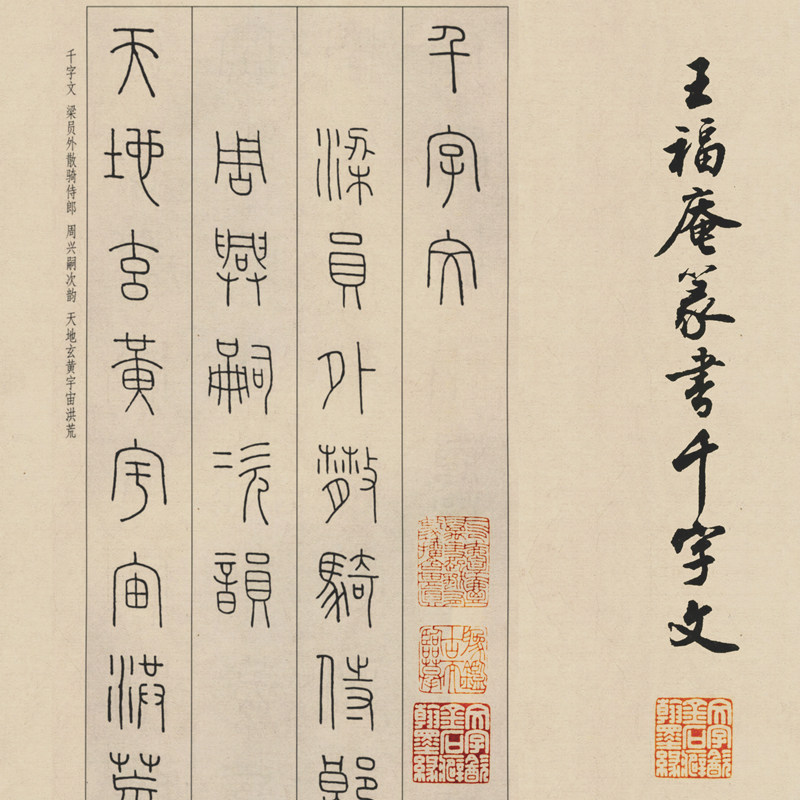 王福庵篆书千字文
千字文
梁員外散騎侍郎
周興嗣次韻
天地玄黃宇宙洪荒
千字文 梁员外散骑侍郎 周兴嗣次韵 天地玄黄宇宙洪荒